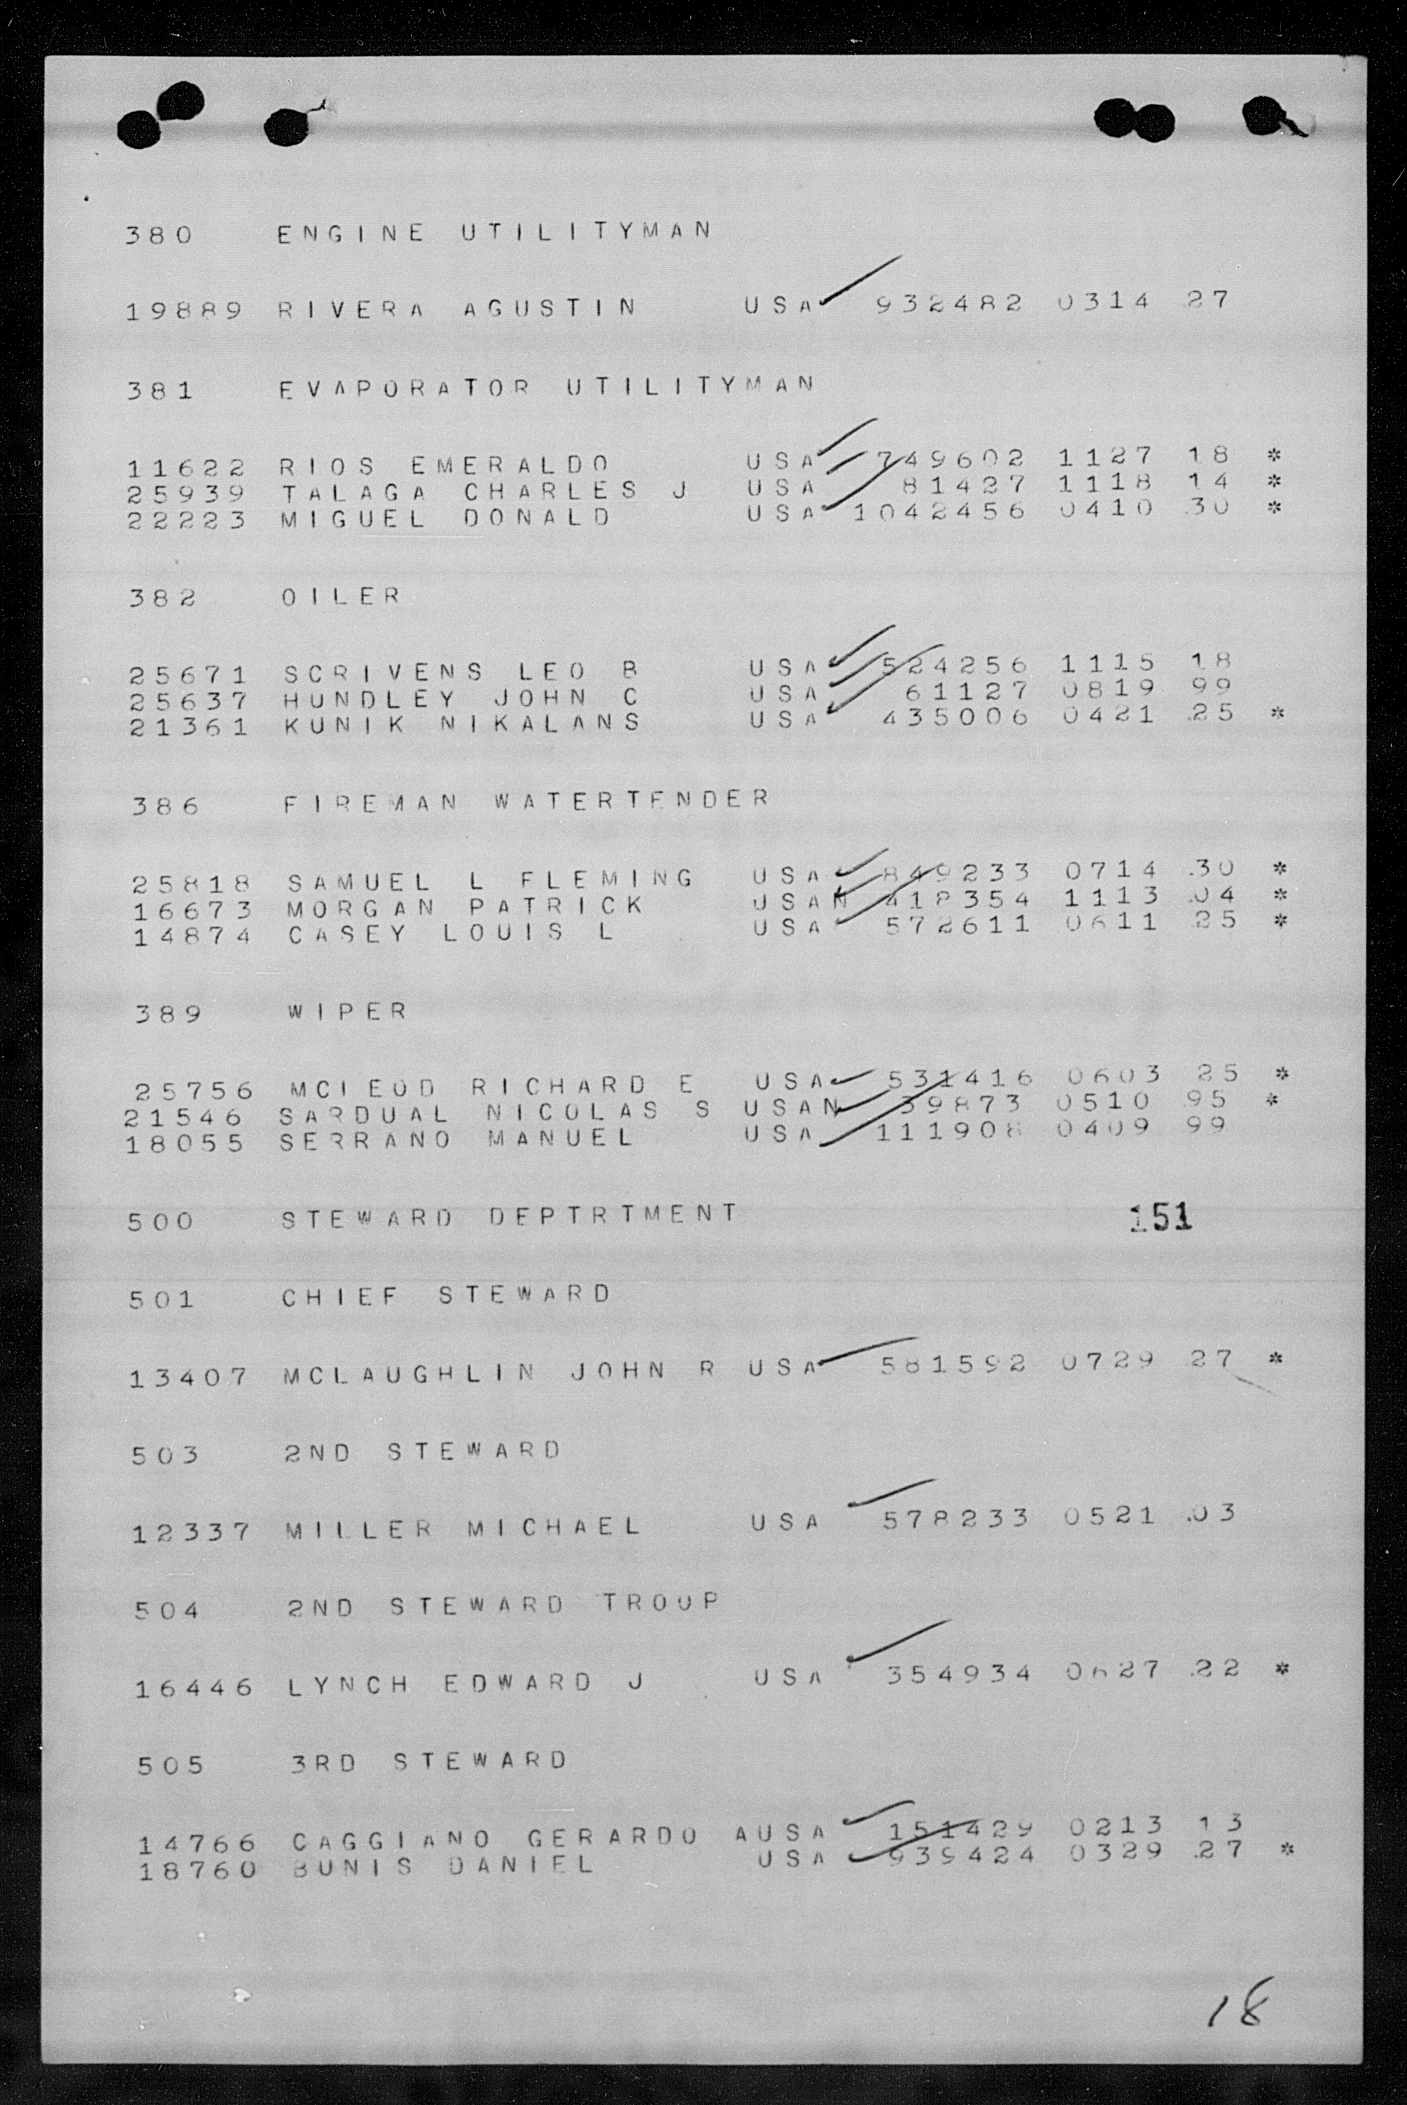 380 ENGINE UTILITYMAN
19889 RIVERA AGUSTIN USA 932482 0314 27
381 EVAPORATOR UTILITYMAN
11622 RIOS EMERALDO USA 749602 1127 18 *
25939 TALAGA CHARLES J USA 81427 1118 14 *
22223 MIGUEL DONALD USA 1042456 0410 30 *
382 OILER
25671 SCRIVENS LEO B USA 524256 1115 18
25637 HUNDLEY JOHN C USA 61127 0819 99
21361 KUNIK NIKALANS USA 435006 0421 25 *
386 FIREMAN WATERTENDER
25818 SAMUEL L FLEMING USA 849233 0714 30 *
16673 MORGAN PATRICK USAN 418354 1113 04 *
14874 CASEY LOUIS L USA 572611 0611 25 *
389 WIPER
25756 MCLEOD RICHARD E USA 531416 0603 25 *
21546 SARDUAL NICOLAS S USAN 39873 0510 95 *
18055 SERRANO MANUEL USA 111908 0409 99
500 STEWARD DEPTRTMENT 151
501 CHIEF STEWARD
13407 MCLAUGHLIN JOHN R USA 581592 0729 27 *
503 2ND STEWARD
12337 MILLER MICHAEL USA 578233 0521 03
504 2ND STEWARD TROOP
16446 LYNCH EDWARD J USA 354934 0627 22 *
505 3RD STEWARD
14766 CAGGIANO GERARDO AUSA 151429 0213 13
18760 BUNIS DANIEL USA 939424 0329 27 *
18